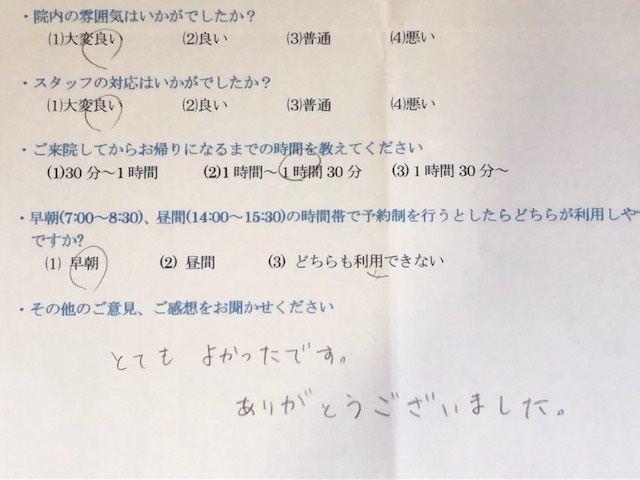 ・院内の雰囲気はいかがでしたか？
(1)大変良い (2)良い (3)普通 (4)悪い
・スタッフの対応はいかがでしたか？
(1)大変良い (2)良い (3)普通 (4)悪い
・ご来院してからお帰りになるまでの時間を教えてください
(1)30分～1時間 (2)1時間～1時間30分 (3)1時間30分～
・早朝(7:00～8:30)、昼間(14:00～15:30)の時間帯で予約制を行うとしたらどちらが利用しや
ですか?
(1) 早朝 (2) 昼間 (3) どちらも利用できない
・その他のご意見、ご感想をお聞かせください
とても よかったです。
ありがとうございました。